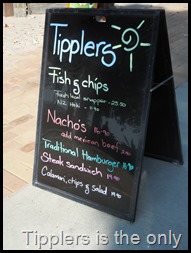 Tipplers
Fish & chips
Fresh local snapper - 25.90
N.Z. Hoki -
Nacho's
add mexican beef
Traditional Hamburger
Steak sandwich
Calamari, chips & salad
Tipplers is the only